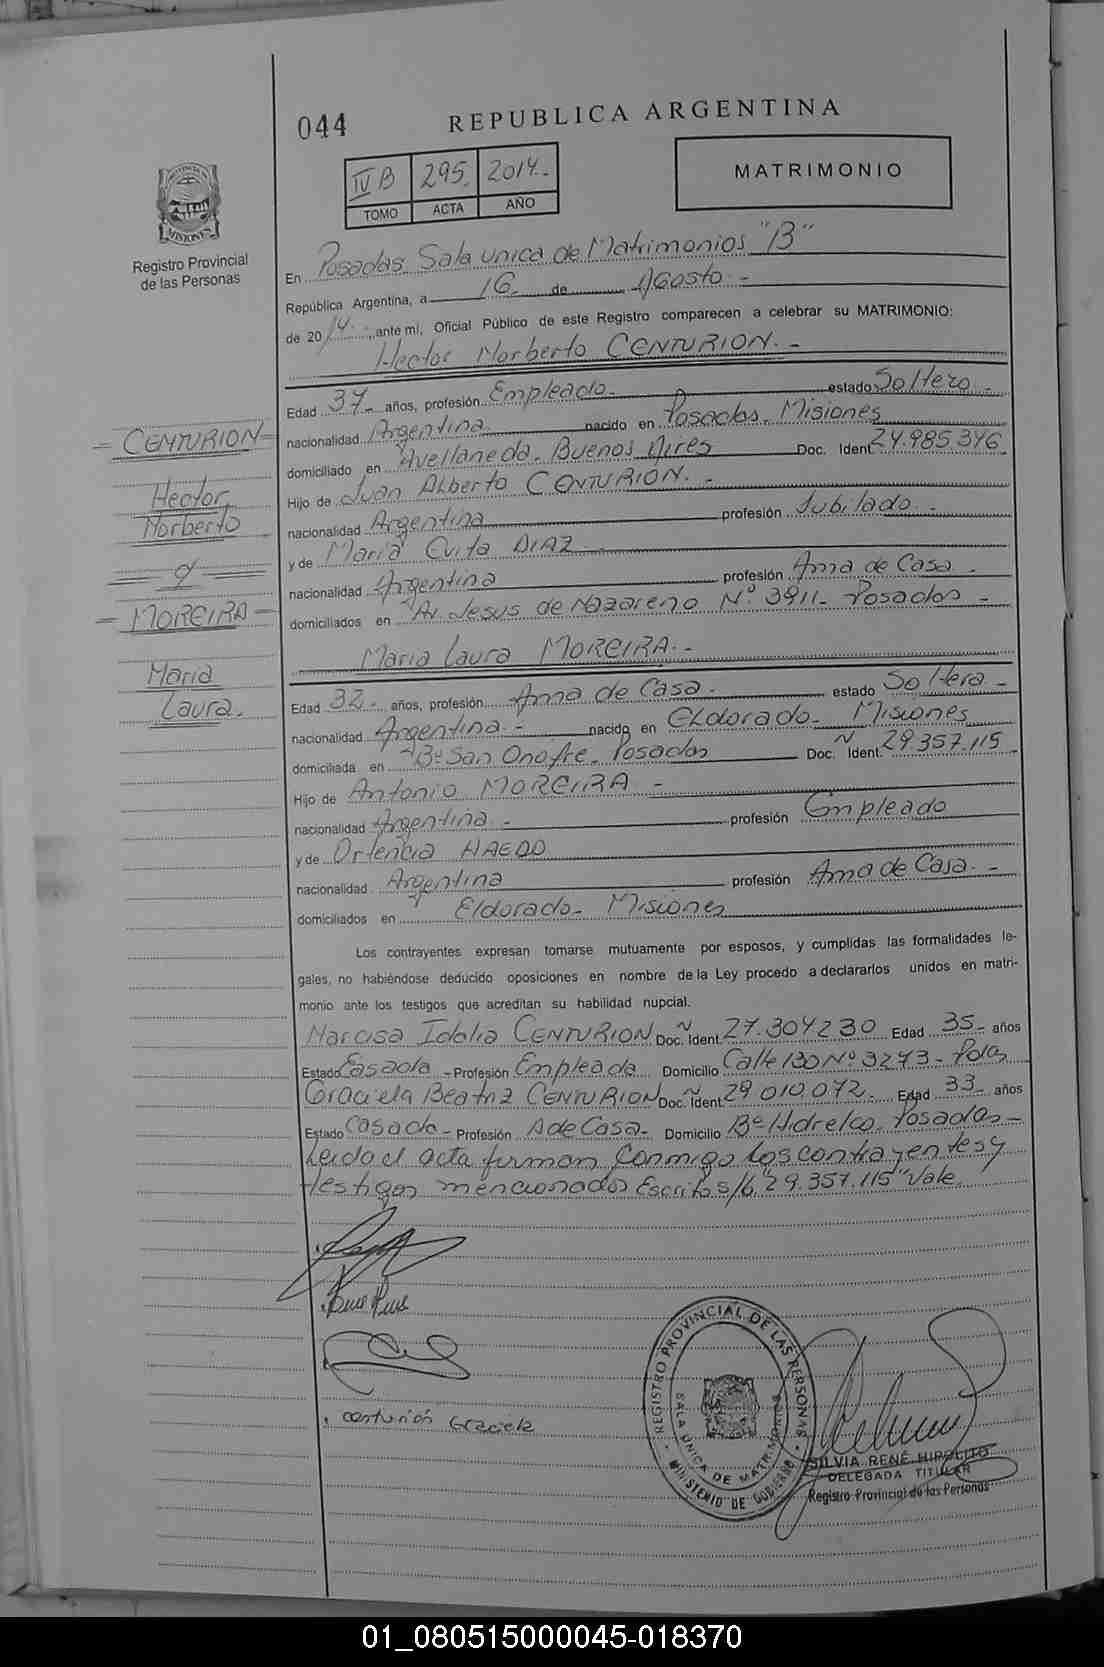 044
REPUBLICA ARGENTINA
IV B 295. 2014.-
TOMO ACTA AÑO
MATRIMONIO
PROVINCIA DE MISIONES
Registro Provincial
de las Personas
En Posadas Sala unica de Matrimonios "B"
República Argentina, a 16 de Agosto -
de 2014. ante mí, Oficial Público de este Registro comparecen a celebrar su MATRIMONIO:
Hector Norberto CENTURION. -
Edad 37- años, profesión Empleado- estado Soltero -
nacionalidad Argentina. nacido en Posadas. Misiones
domiciliado en Avellaneda. Buenos Aires Doc. Ident. 24.985.346
Hijo de Juan Alberto CENTURION. -
nacionalidad Argentina profesión Jubilado -
y de Maria Evita DIAZ -
nacionalidad Argentina profesión Ama de Casa -
domiciliados en Av. Jesus de Nazareno Nº 3911- Posadas -
= CENTURION =
Hector
Norberto
= y =
= MOREIRA =
Maria
Laura.
Maria Laura MOREIRA. -
Edad 32 - años, profesión Ama de Casa - estado Soltera -
nacionalidad Argentina. - nacido en Eldorado - Misiones
domiciliada en Bº San Onofre. Posadas Doc. Ident. 29.357.115
Hijo de Antonio MOREIRA -
nacionalidad Argentina. - profesión Empleado
y de Ortencia HAEDO
nacionalidad Argentina profesión Ama de Casa. -
domiciliados en Eldorado - Misiones
Los contrayentes expresan tomarse mutuamente por esposos, y cumplidas las formalidades le-
gales, no habiéndose deducido oposiciones en nombre de la Ley procedo a declararlos unidos en matri-
monio ante los testigos que acreditan su habilidad nupcial.
Narcisa Idalia CENTURION Doc. Ident. 27.304230 Edad 35- años
Estado Casada - Profesión Empleada Domicilio Calle 130 Nº 3273 - Pdas
Graciela Beatriz CENTURION Doc. Ident. 29 010.072 - Edad 33- años
Estado Casada - Profesión A de Casa- Domicilio Bº Hidrelco. Posadas -
Leida el acta firman conmigo los contrayentes y
testigos mencionados Escritos/b "29.357.115" Vale.
centurión Graciela
REGISTRO PROVINCIAL DE LAS PERSONAS
SALA UNICA DE MATRIMONIOS
MINISTERIO DE GOBIERNO
SILVIA RENÉ HIPOLITO
DELEGADA TITULAR
Registro Provincial de las Personas
01_080515000045-018370